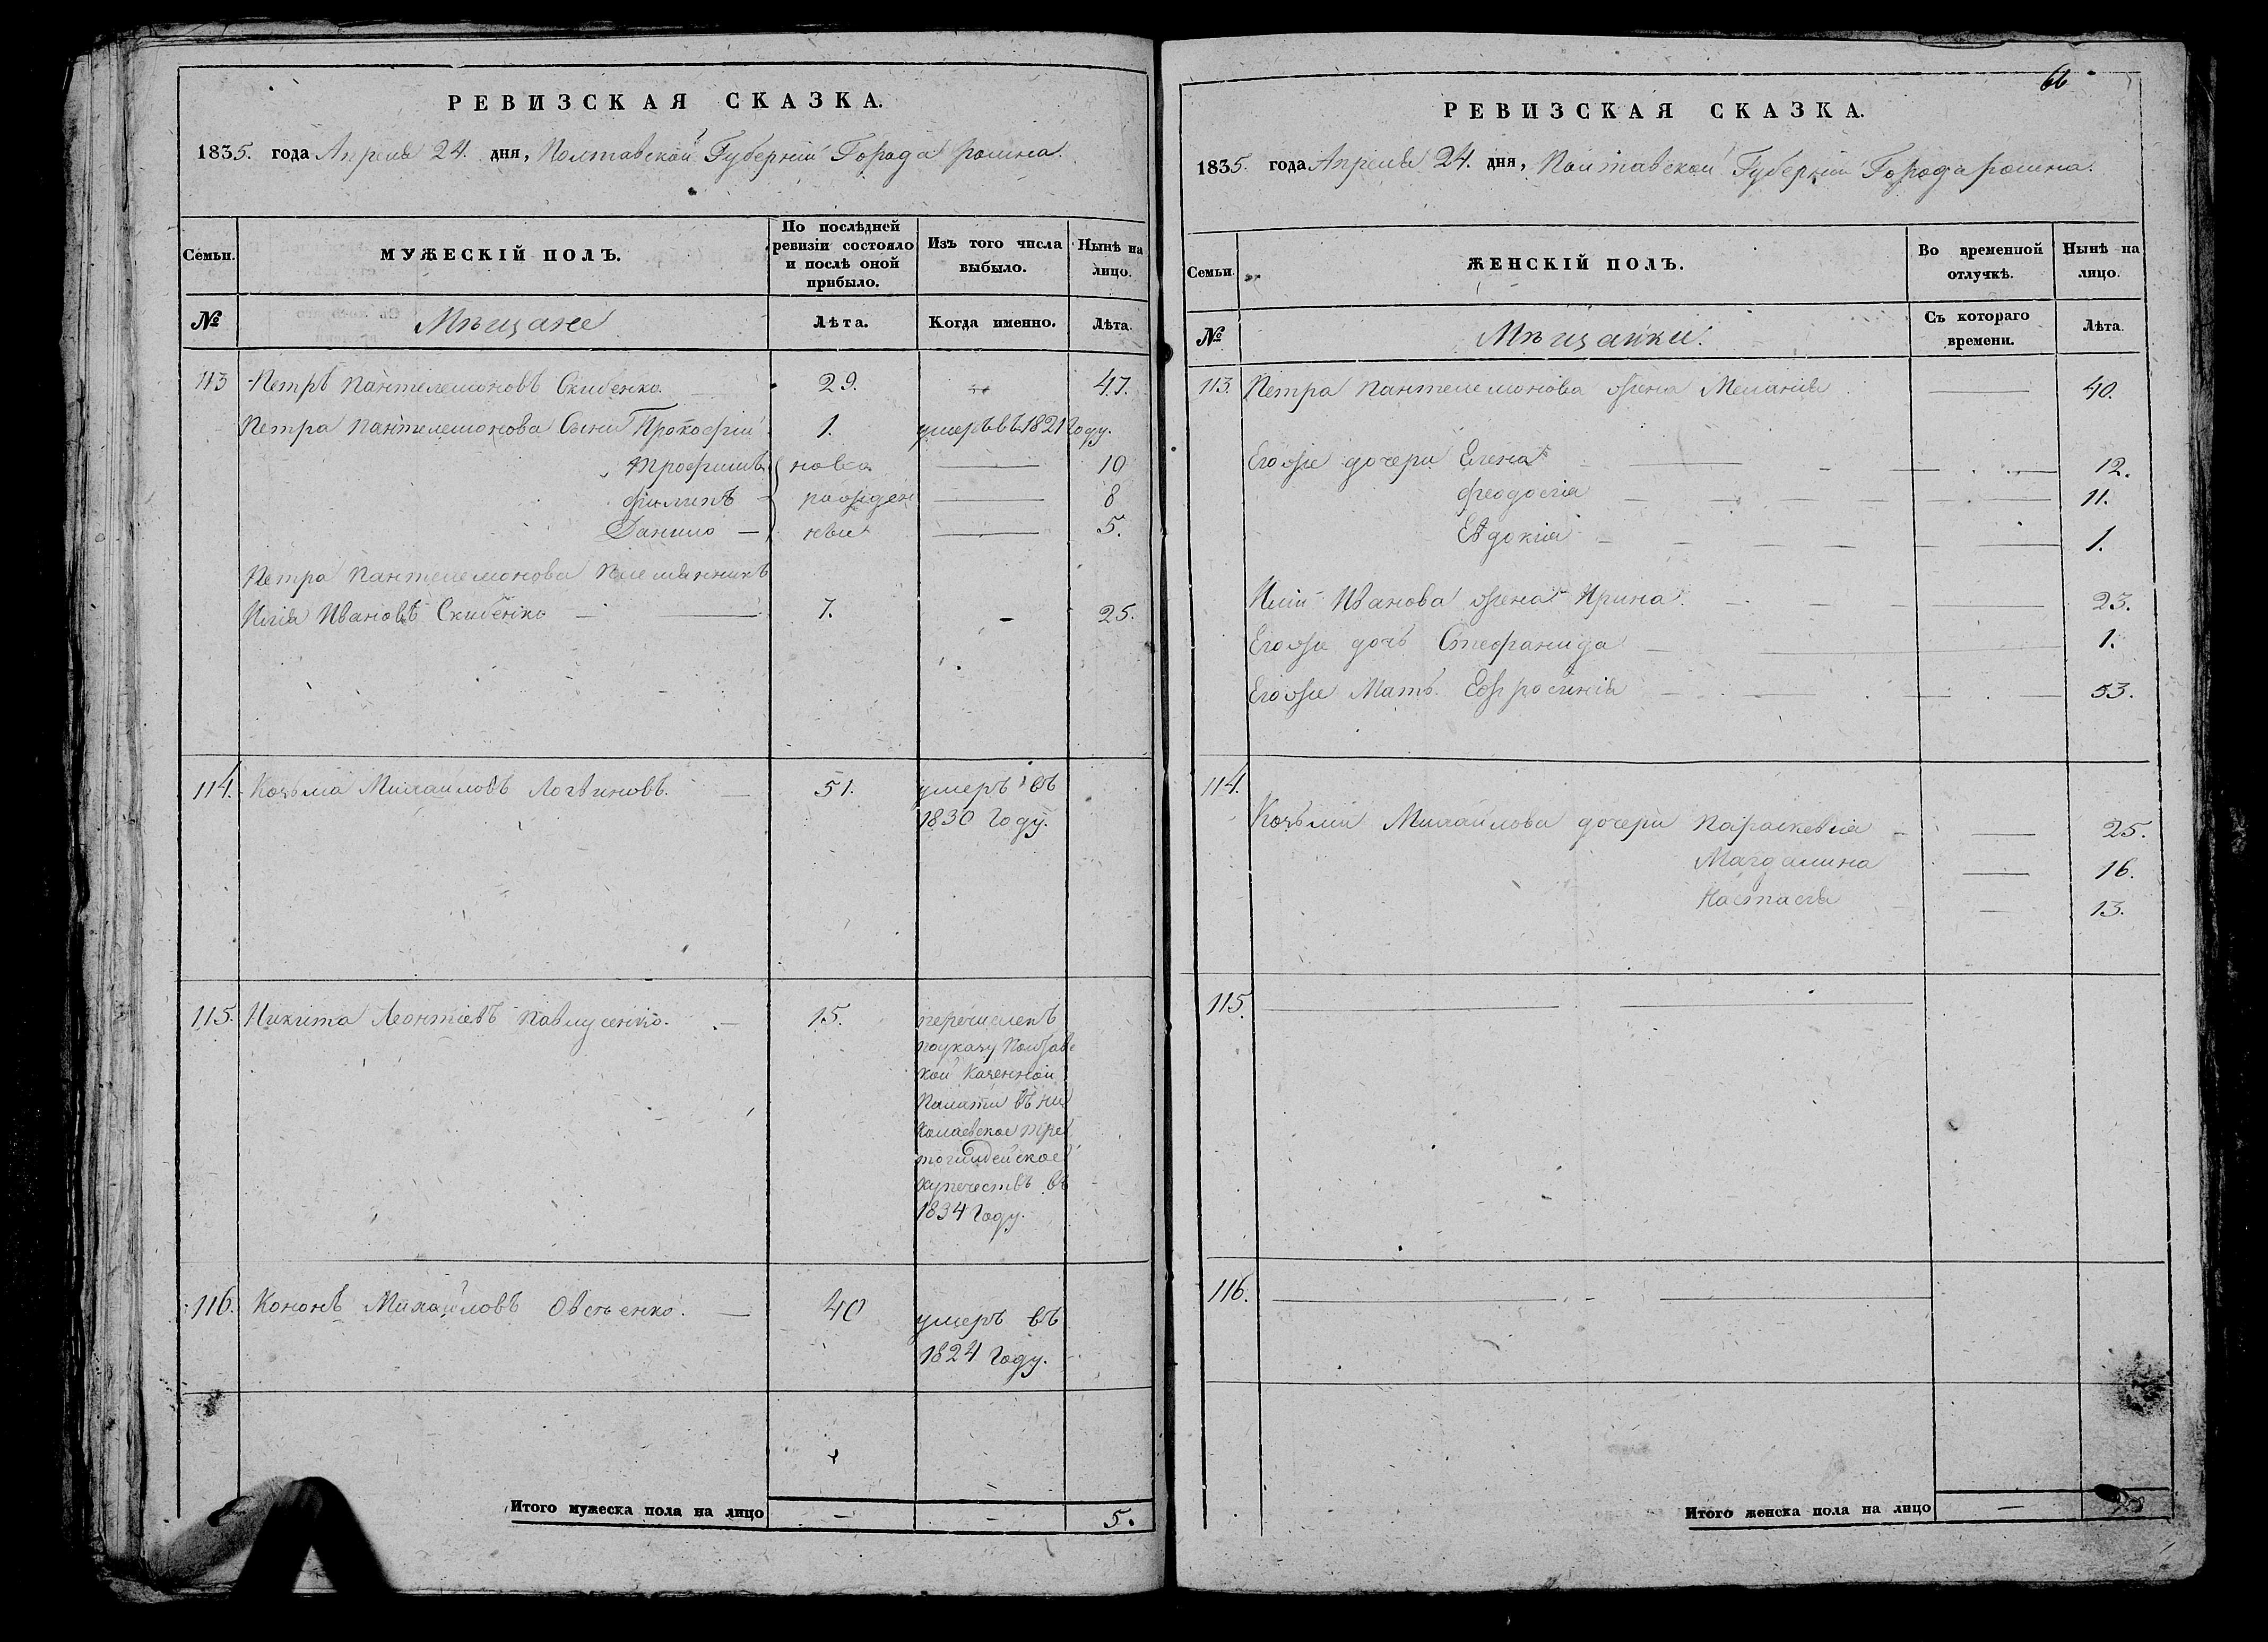 РЕВИЗСКАЯ СКАЗКА.
1835. года Апреля 24. дня, Полтавской Губернiи Города ромна.
Семьи.
МУЖЕСКІЙ ПОЛЪ.
По послѣдней ревизіи состояло и послѣ оной прибыло.
Изъ того числа выбыло.
Нынѣ на лицо.
№
Мѣщане
Лѣта.
Когда именно.
Лѣта.
113 Петръ Пантелемоновъ Скибенко. 29. 47.
Петра Пантелемонова Сыни Прокофiй 1. умеръ въ 1821 Году.
Трофимъ ново 10
Филипъ рожден 8
Данило — ныи 5.
Петра Пантелемонова Племянникъ
Илiя Ивановъ Скибенко — 7. - 25.
114. Козьма Михайловъ Логвиновъ. — 51. умеръ въ
1830 Году.
115. Никита Леонтiевъ Павлусенко. — 15. перечисленъ
поуказу Полтавс
кой Казенной
Палати въ Ни
колаевское тре
тогилдейское
купечествъ въ
1834 Году.
116. Кононъ Михайловъ Овсѣенко. — 40 умеръ въ
1824 Году.
Итого мужеска пола на лицо — — 5.
66
РЕВИЗСКАЯ СКАЗКА.
1835. года Апреля 24. дня, Полтавской Губернiи Города ромна.
Семьи.
ЖЕНСКІЙ ПОЛЪ.
Во временной отлучкѣ.
Нынѣ на лицо.
№
Мѣщанки.
Съ котораго времени.
Лѣта.
113. Петра Пантелемонова жена Меланiя — 40.
Егоже дочери Елена — 12.
Феодосiя — 11.
Евдокiя — 1.
Илiи Иванова жена Ирина. — 23.
Егоже дочь Стефанида — 1.
Егоже Мать Ефросинiя — 53.
114.
Козьмы Михайлова дочери Параскевiя — 25.
Магдалина — 16.
Настасiя — 13.
115. —
116. —
Итого женска пола на лицо —